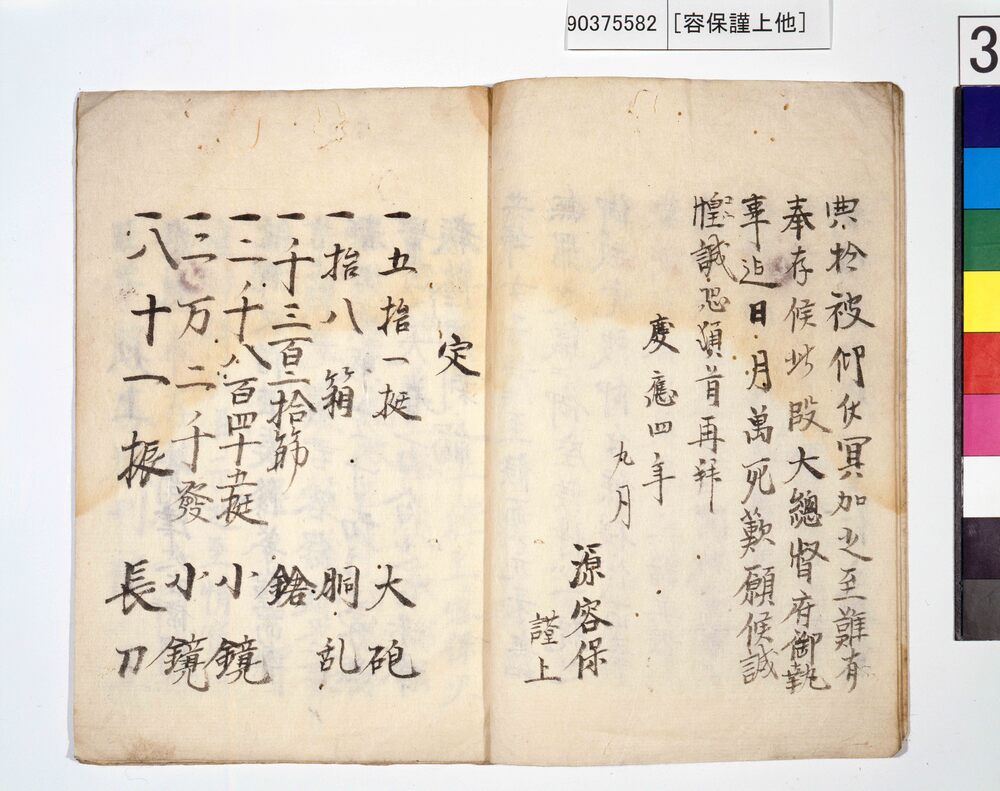 90375582 [容保謹上他]
3
典於被仰付冥加之至難有
奉存候此段大總督府御執
事迄日月萬死歎願候誠
惶誠恐頓首再拜
慶應四年
九月
源容保
謹上
定
一五拾一挺 大砲
一拾八箱 胴乱
一千三百二拾筋 鎗
一二千八百四十五挺 小鏡
一二万二千發 小鏡
一八十一振 長刀